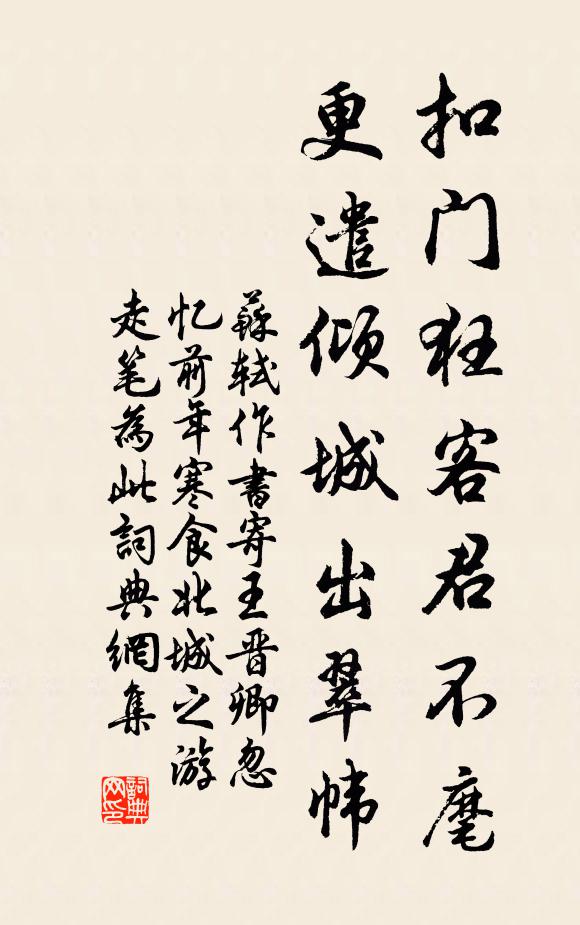 扣门狂客君不麾
更遣倾城出翠帏
蘇轼作書寄王晋卿忽
忆前年寒食北城之游
走笔為此詞典網集
詞典
网印